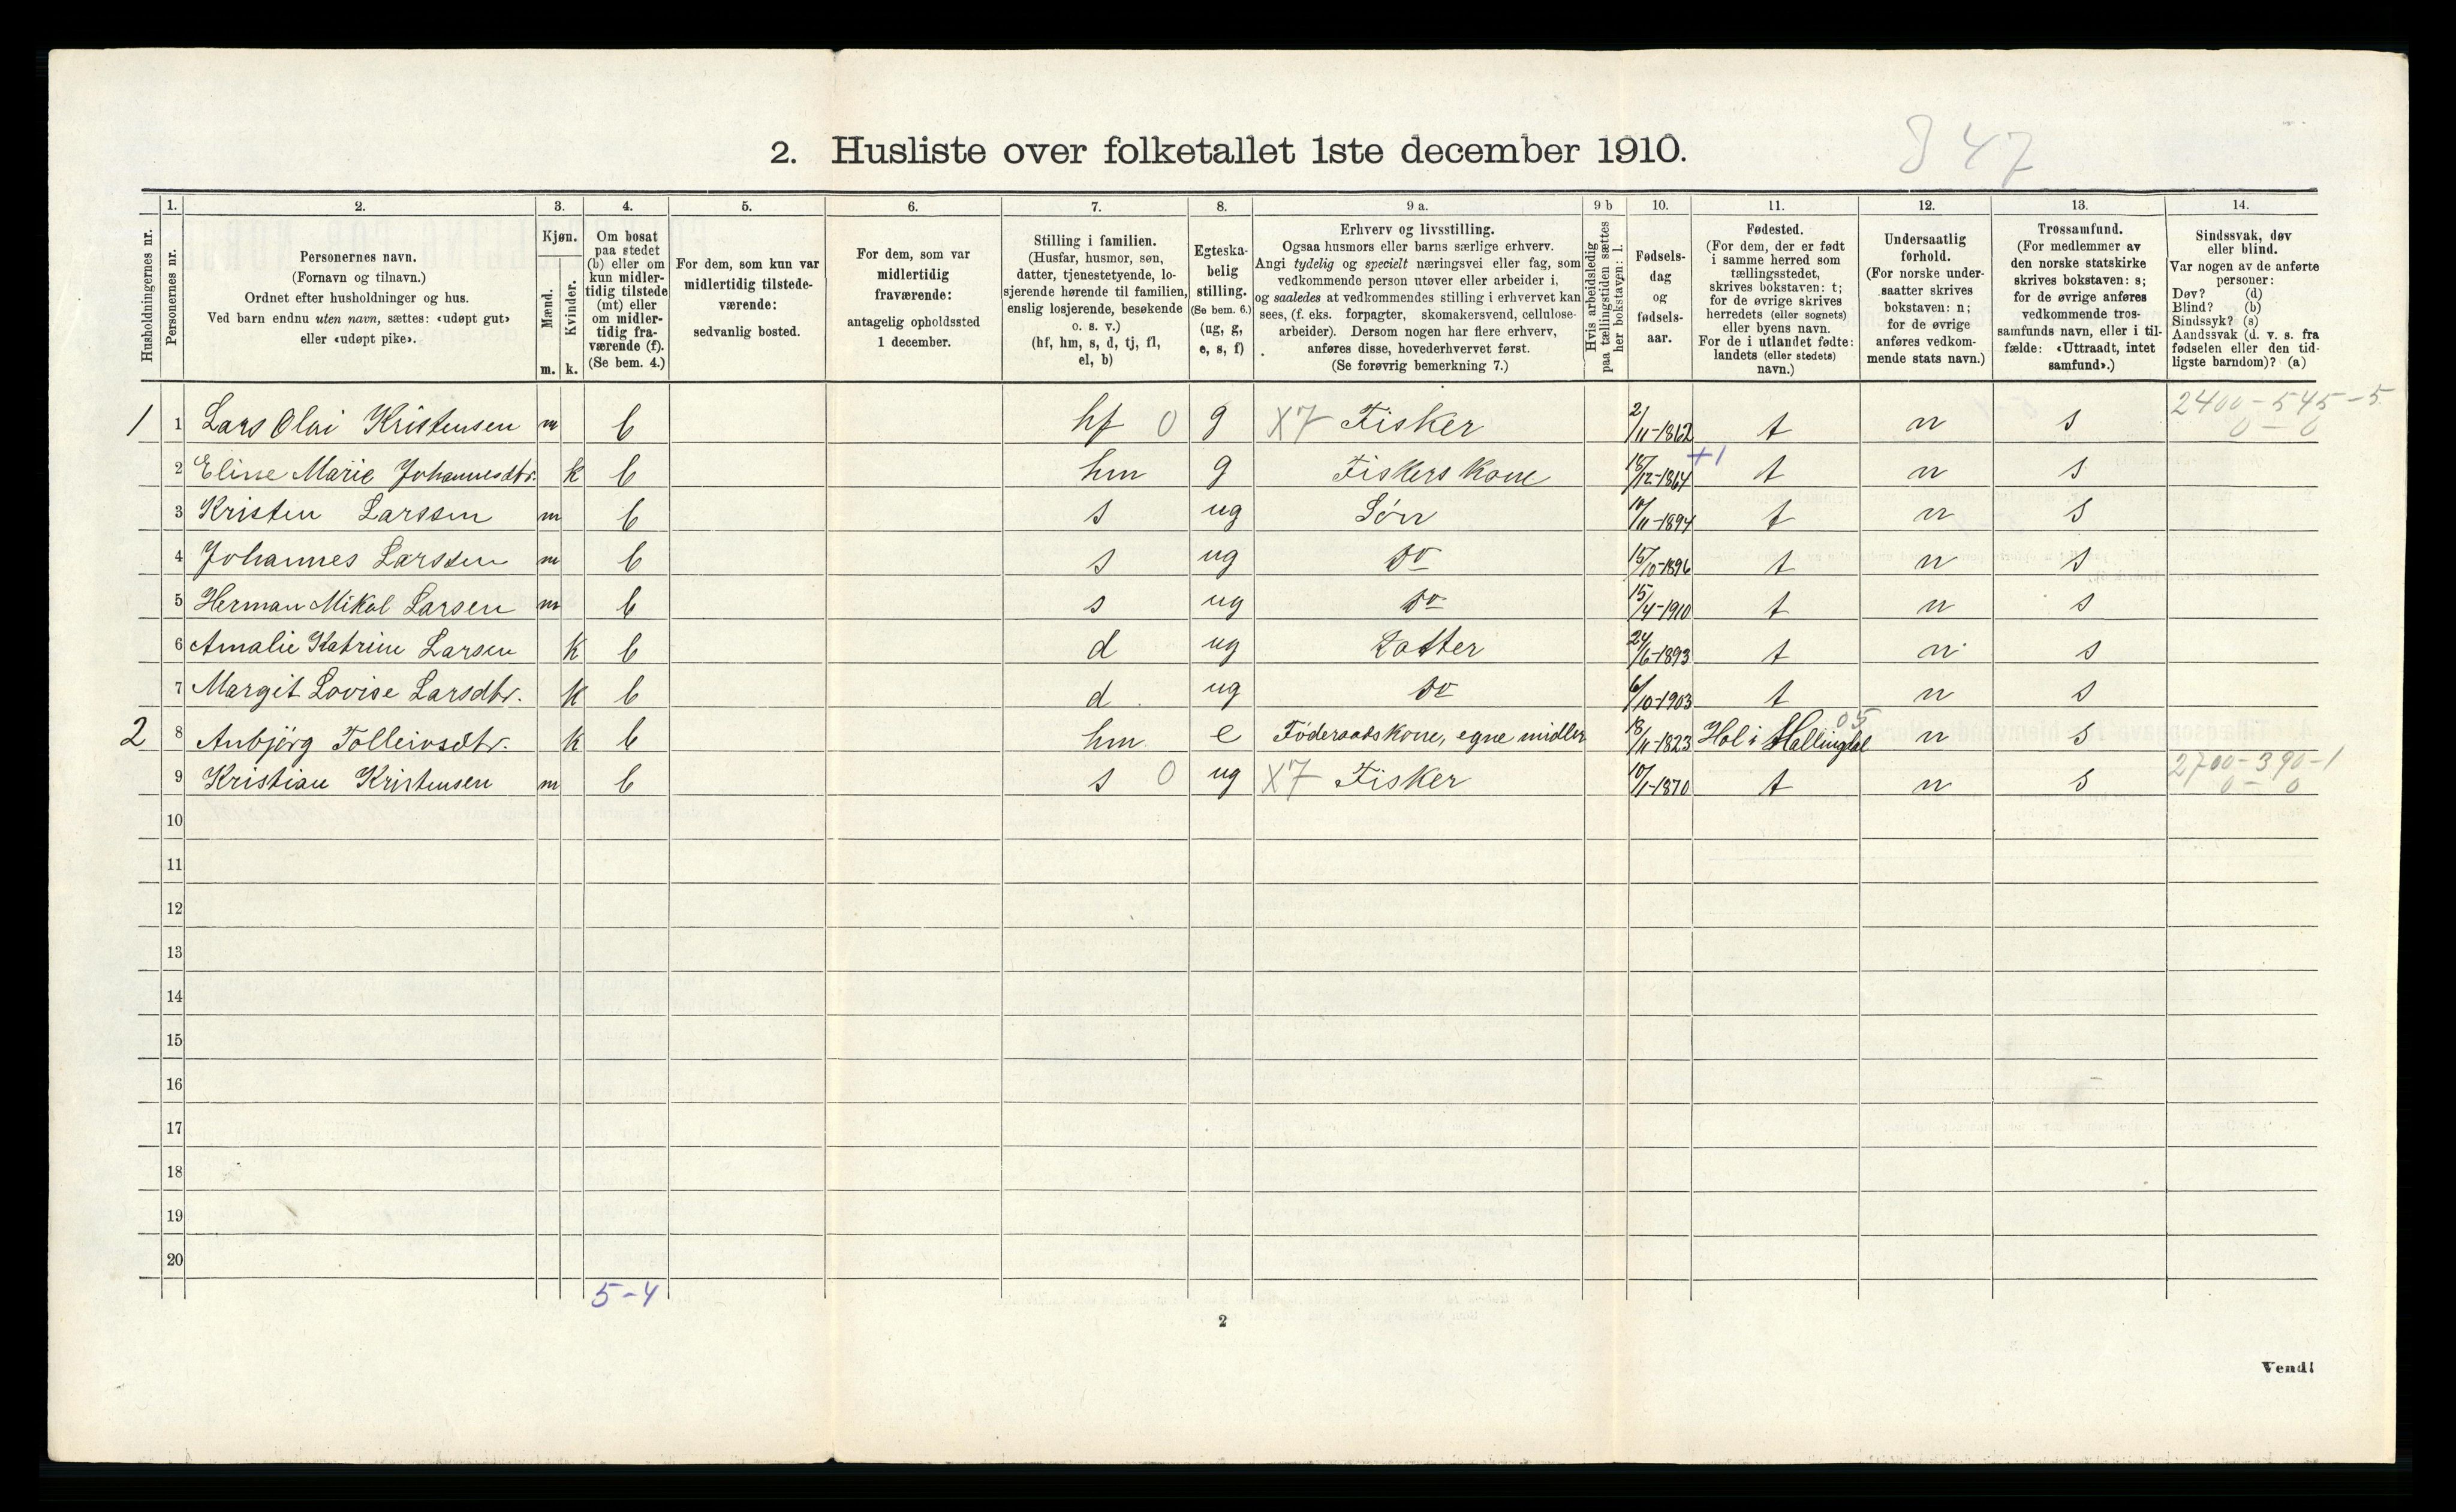 2. Husliste over folketallet 1ste december 1910.
847
Husholdningernes nr.
1.
Personernes nr.
2.
Personernes navn.
(Fornavn og tilnavn.)
Ordnet efter husholdninger og hus.
Ved barn endnu uten navn, sættes: «udøpt gut»
eller «udøpt pike».
3.
Kjøn.
Mænd.
Kvinder.
m. k.
4.
Om bosat
paa stedet
(b) eller om
kun midler-
tidig tilstede
(mt) eller
om midler-
tidig fra-
værende (f).
(Se bem. 4.)
5.
For dem, som kun var
midlertidig tilstede-
værende:
sedvanlig bosted.
6.
For dem, som var
midlertidig
fraværende:
antagelig opholdssted
1 december.
7.
Stilling i familien.
(Husfar, husmor, søn,
datter, tjenestetyende, lo-
sjerende hørende til familien,
enslig losjerende, besøkende
o. s. v.)
(hf, hm, s, d, tj, fl,
el, b)
8.
Egteska-
belig
stilling.
(Se bem. 6.)
(ug, g,
e, s, f)
9 a.
Erhverv og livsstilling.
Ogsaa husmors eller barns særlige erhverv.
Angi tydelig og specielt næringsvei eller fag, som
vedkommende person utøver eller arbeider i,
og saaledes at vedkommendes stilling i erhvervet kan
sees, (f. eks. forpagter, skomakersvend, cellulose-
arbeider). Dersom nogen har flere erhverv,
anføres disse, hovederhvervet først.
(Se forøvrig bemerkning 7.)
9 b
Hvis arbeidsledig
paa tællingstiden sættes
her bokstaven: l.
10.
Fødsels-
dag
og
fødsels-
aar.
11.
Fødested.
(For dem, der er født
i samme herred som
tællingsstedet,
skrives bokstaven: t;
for de øvrige skrives
herredets (eller sognets)
eller byens navn.
For de i utlandet fødte:
landets (eller stedets)
navn.)
12.
Undersaatlig
forhold.
(For norske under-
saatter skrives
bokstaven: n;
for de øvrige
anføres vedkom-
mende stats navn.)
13.
Trossamfund.
(For medlemmer av
den norske statskirke
skrives bokstaven: s;
for de øvrige anføres
vedkommende tros-
samfunds navn, eller i til-
fælde: «Uttraadt, intet
samfund».)
14.
Sindssvak, døv
eller blind.
Var nogen av de anførte
personer:
Døv? (d)
Blind? (b)
Sindssyk? (s)
Aandssvak (d. v. s. fra
fødselen eller den tid-
ligste barndom)? (a)
1 1 Lars Olai Kristensen m b hf 0 g X7 Fisker 2/11-1862 t n s 2400-545-5 0-0
2 Eline Marie Johannesdtr. k b hm g Fiskers kone 18/12-1864 +1 t n s
3 Kristen Larssen m b s ug Søn 10/11-1894 t n s
4 Johannes Larssen m b s ug do 15/10-1896 t n s
5 Herman Mikal Larsen m b s ug do 15/4-1910 t n s
6 Amalie Katrine Larsen k b d ug Datter 24/6-1893 t n s
7 Margit Lovise Larsdtr. k b d ug do 6/10-1903 t n s
2 8 Anbjørg Tolleivsdtr. k b hm e Føderaadskone, egne midler 18/11-1823 Hol i Hallingdal 05 n s
9 Kristian Kristensen m b s 0 ug X7 Fisker 10/1-1870 t n s 2700-390-1 0-0
10
11
12
13
14
15
16
17
18
19
20
5-4
2
Vend!